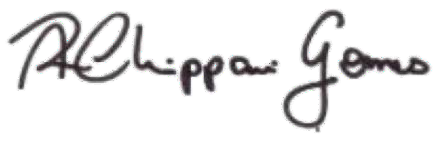 R Chippari Gomes